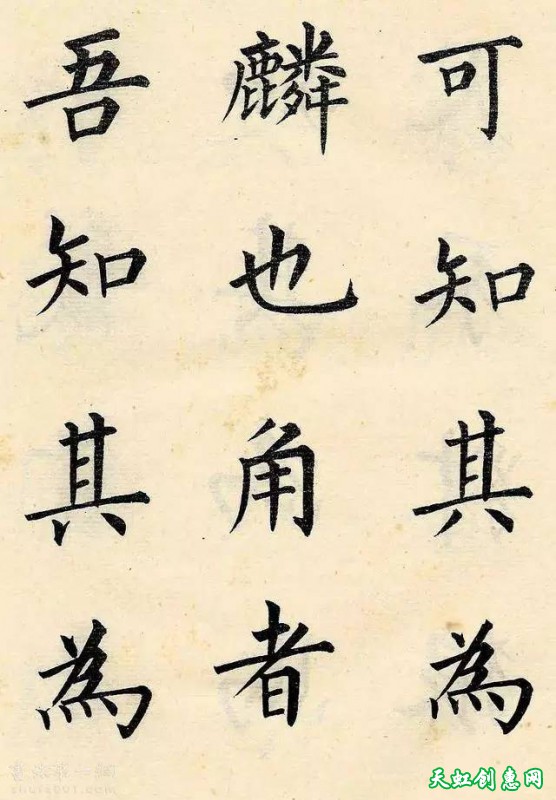 可知其為
麟也角者
吾知其為
天虹创惠网